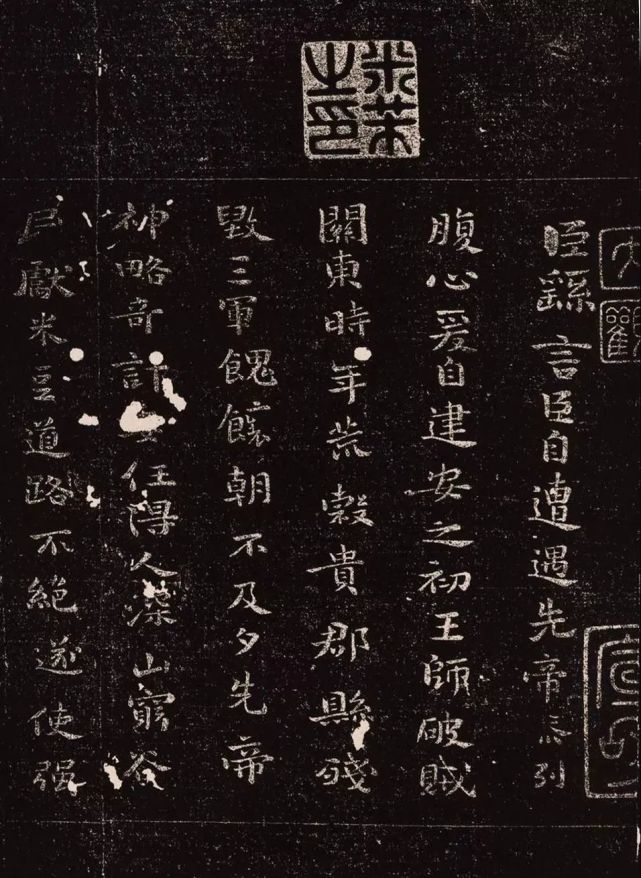 米芾之印
臣繇言臣自遭遇先帝忝列
腹心爰自建安之初王師破賊
關東時年荒穀貴郡縣殘
毀三軍餽饟朝不及夕先帝
神略奇計任得人深山窮谷
民獻米豆道路不絕遂使強